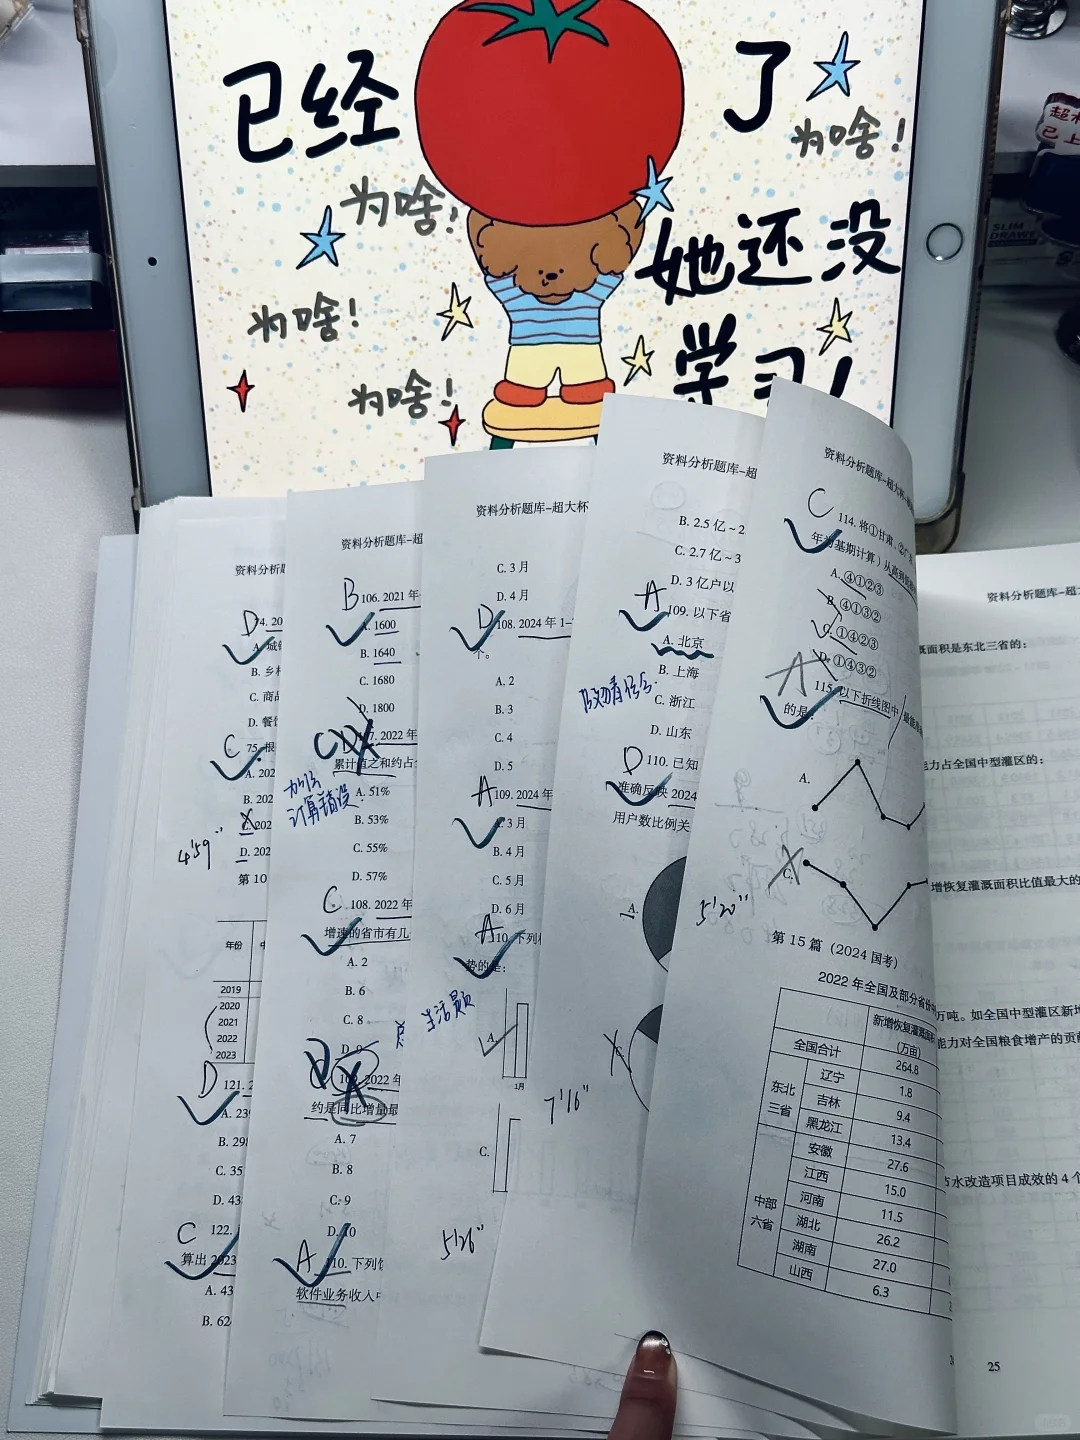 已经
了
为啥!
为啥!
她还没
为啥!
学习!
为啥!
SLIM
资料分析题
D 74. 20
A. 城镇
B. 乡村
C. 商品
D. 餐饮
C 75. 根
A. 202
B. 202
C. 202
D. 202
4'59"
第 10
年份
2019
2020
2021
2022
2023
D 121. 2
A. 239
B. 298
C. 35
D. 43
C 122.
算出 2023
A. 43
B. 62
资料分析题库-超
B 106. 2021 年
A. 1600
B. 1640
C. 1680
D. 1800
107. 2022 年
累计值之和约占
A. 51%
加法
计算错误!
B. 53%
C. 55%
D. 57%
C 108. 2022 年
增速的省市有几
A. 2
B. 6
C. 8
D. 9
109. 2022 年
约是同比增量最
A. 7
B. 8
C. 9
D. 10
A 110. 下列
软件业务收入
资料分析题库-超大杯
C. 3 月
D. 4 月
D 108. 2024 年 1-
个。
A. 2
B. 3
C. 4
D. 5
A 109. 2024 年
A. 3 月
B. 4 月
C. 5 月
D. 6 月
A 110. 下列
势的是:
A.
1月
C.
5'26"
资料分析题库-超
B. 2.5 亿~2
C. 2.7 亿~3
D. 3 亿户以
A 109. 以下省
A. 北京
B. 上海
C. 浙江
D. 山东
D 110. 已知
准确反映 2024
用户数比例关
A.
C.
7'16"
资料分析题库-超大杯
C 114. 将①甘肃、②广
年为基期计算)从高到低
A. ④①②③
B. ④①③②
C. ①④②③
D. ①④③②
A 115. 以下折线图中
的是:
A.
C.
5'20"
第 15 篇(2024 国考)
2022 年全国及部分省份中
新增恢复灌溉面积
(万亩)
全国合计 264.8
东北三省 辽宁 1.8
吉林 9.4
黑龙江 13.4
中部六省 安徽 27.6
江西 15.0
河南 11.5
湖北 26.2
湖南 27.0
山西 6.3
资料分析题
溉面积是东北三省的:
能力占全国中型灌区的:
增恢复灌溉面积比值最大的
万吨。如全国中型灌区新增
能力对全国粮食增产的贡献
水改造项目成效的 4 个
25